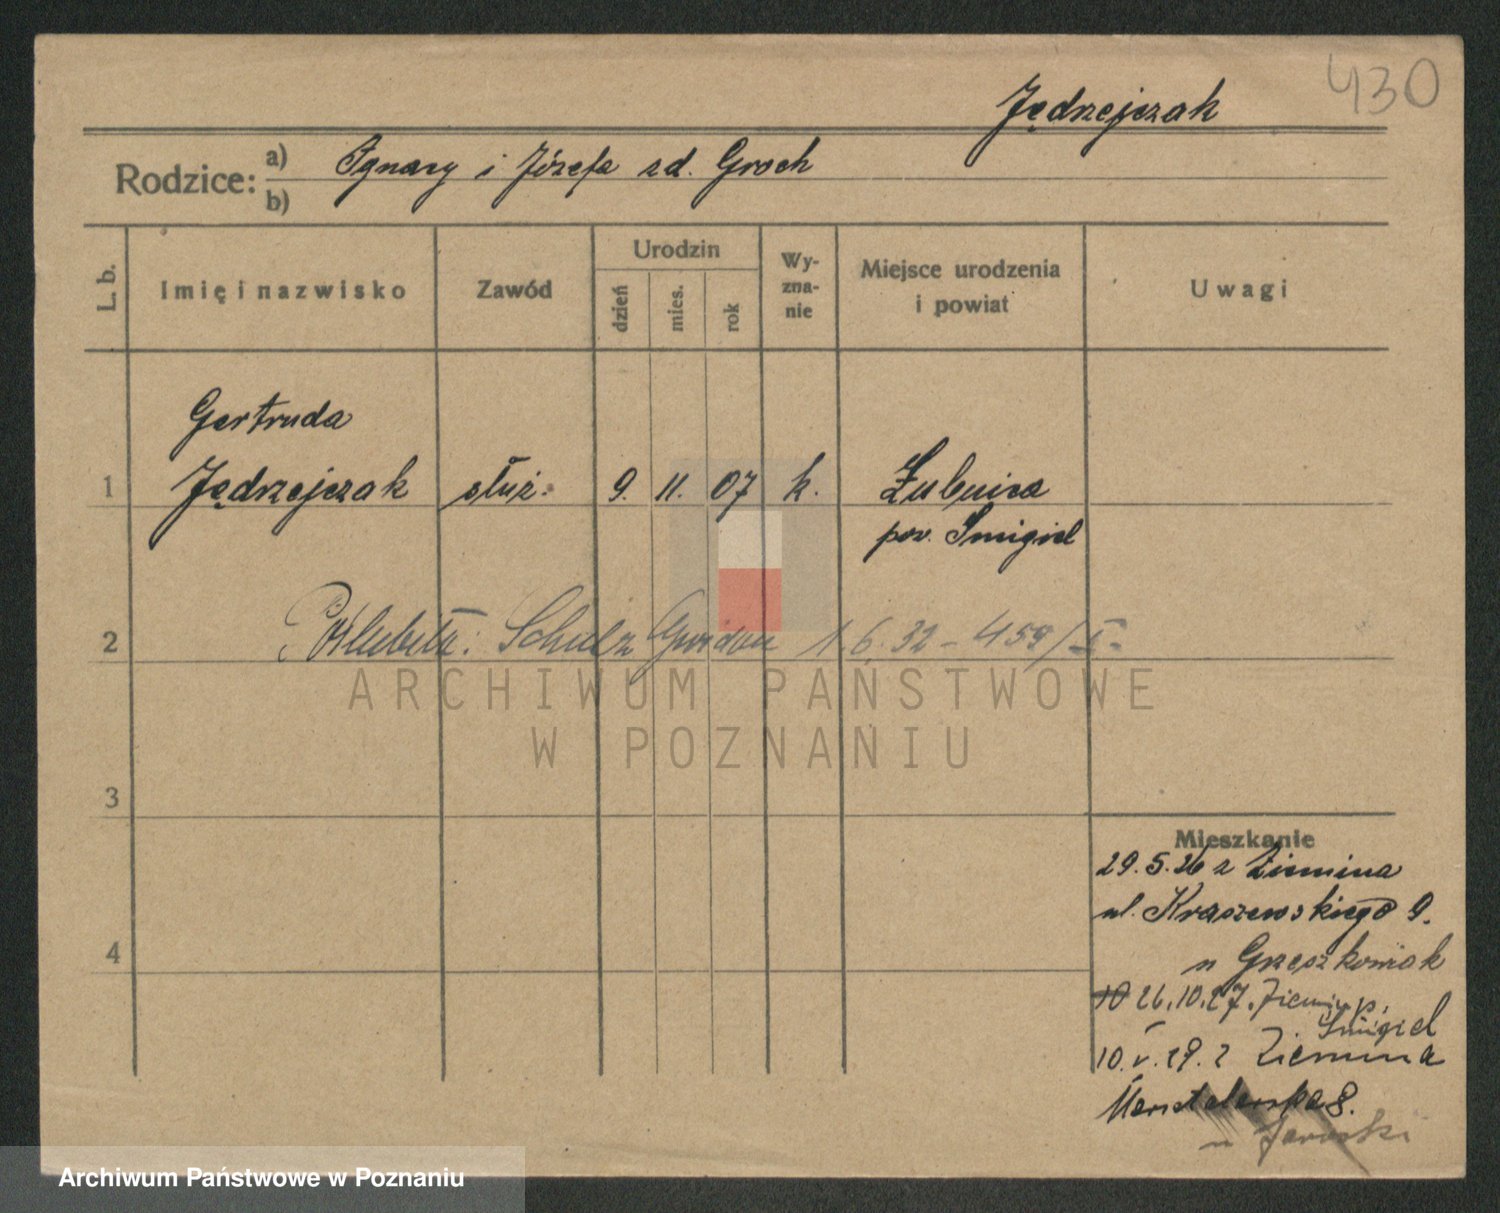 430
Jędrzejczak
Rodzice: a) Ignacy i Józefa zd. Groch
b)
L. b.
Imię i nazwisko
Zawód
Urodzin
dzień
mies.
rok
Wy-
zna-
nie
Miejsce urodzenia
i powiat
Uwagi
Gertruda
1 Jędrzejczak służ. 9. 11. 07 k. Żubnica
pow. Śmigiel
2 Schulz 1.6.32 – 459/I
3
4
Mieszkanie
29.5.26 z Ziemina
ul. Kraszewskiego 9.
u Grzeszkowiak
10 26.10.27. Ziemin p.
Śmigiel
10.V.29. z Ziemina
8.
u Jaroski
ARCHIWUM PAŃSTWOWE
W POZNANIU
Archiwum Państwowe w Poznaniu